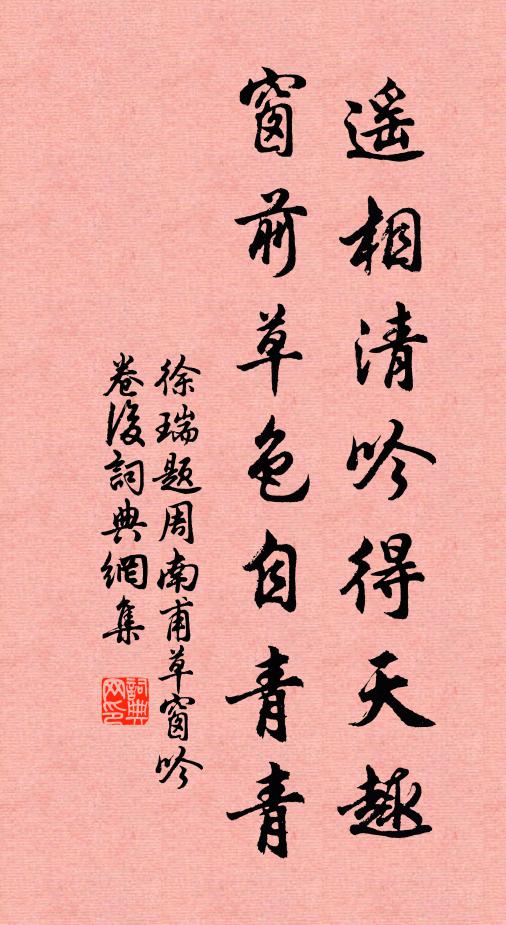 遥相清吟得天趣
窗前草色自青青
徐瑞題周南甫草窗吟
卷後詞典網集
詞典
网印